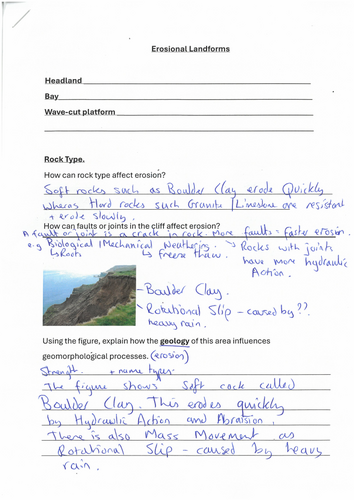 Erosional Landforms
Headland
Bay
Wave-cut platform
Rock Type.
How can rock type affect erosion?
Soft rocks such as Boulder Clay erode Quickly
Wheras Hard rocks such Granite / Limestone are resistant
+ erode slowly.
How can faults or joints in the cliff affect erosion?
A fault or joint is a crack in rock. More faults = faster erosion.
e.g Biological / Mechanical Weathering. → Rocks with joints
↳ Roots ↳ freeze thaw. have more hydraulic
Action.
- Boulder Clay.
- Rotational Slip - caused by??
heavy rain.
Using the figure, explain how the geology of this area influences
geomorphological processes. (erosion)
Strength. + name types.
The figure shows Soft rock called
Boulder Clay. This erodes quickly
by Hydraulic Action and Abraision.
There is also Mass Movement as
Rotational Slip - caused by heavy
rain.